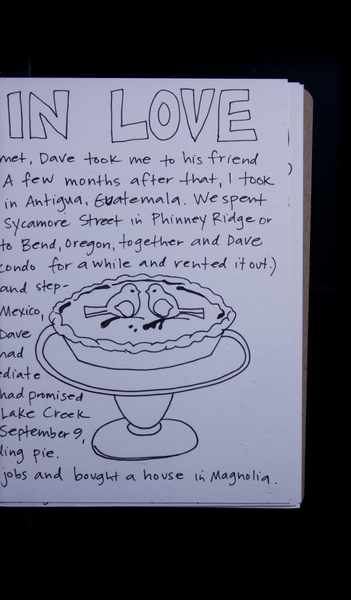 IN LOVE
met, Dave took me to his friend
A few months after that, I took
in Antigua, Guatemala. We spent
Sycamore Street in Phinney Ridge or
to Bend, Oregon, together and Dave
condo for a while and rented it out.)
and step-
Mexico,
Dave
had
ediate
had promised
Lake Creek
September 9,
ling pie.
jobs and bought a house in Magnolia.